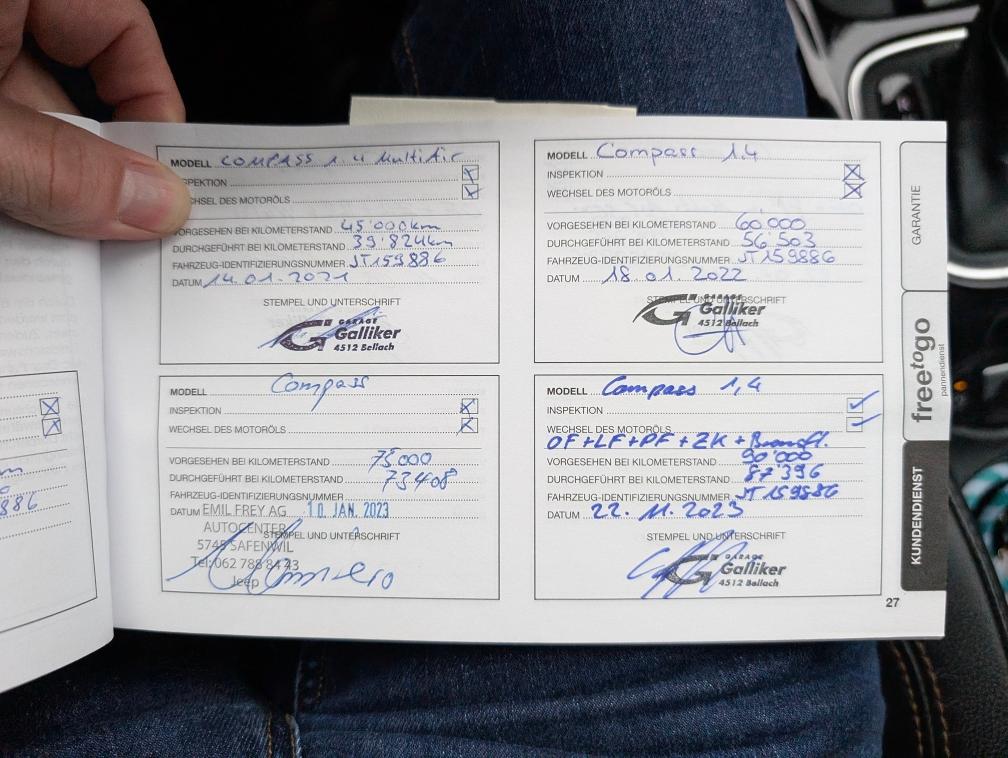 MODELL COMPASS 1.4 MultiAir
SPEKTION
CHSEL DES MOTORÖLS
VORGESEHEN BEI KILOMETERSTAND 45'000km
DURCHGEFÜHRT BEI KILOMETERSTAND 39'824km
FAHRZEUG-IDENTIFIZIERUNGSNUMMER JT159886
DATUM 14.01.2021
STEMPEL UND UNTERSCHRIFT
GARAGE
Galliker
4512 Bellach
MODELL Compass 1.4
INSPEKTION
WECHSEL DES MOTORÖLS
VORGESEHEN BEI KILOMETERSTAND 60'000
DURCHGEFÜHRT BEI KILOMETERSTAND 56'503
FAHRZEUG-IDENTIFIZIERUNGSNUMMER JT159886
DATUM 18.01.2022
STEMPEL UND UNTERSCHRIFT
GARAGE
Galliker
4512 Bellach
MODELL Compass
INSPEKTION
WECHSEL DES MOTORÖLS
VORGESEHEN BEI KILOMETERSTAND 75000
DURCHGEFÜHRT BEI KILOMETERSTAND 73408
FAHRZEUG-IDENTIFIZIERUNGSNUMMER
DATUM 10. JAN. 2023
EMIL FREY AG
AUTOCENTER
STEMPEL UND UNTERSCHRIFT
5745 SAFENWIL
Tel. 062 788 84 43
Jeep
MODELL Compass 1,4
INSPEKTION
WECHSEL DES MOTORÖLS
OF+LF+PF+ZK+Bremsfl.
VORGESEHEN BEI KILOMETERSTAND 90'000
DURCHGEFÜHRT BEI KILOMETERSTAND 87'396
FAHRZEUG-IDENTIFIZIERUNGSNUMMER JT159886
DATUM 22.11.2023
STEMPEL UND UNTERSCHRIFT
GARAGE
Galliker
4512 Bellach
27
GARANTIE
freetogo
pannendienst
KUNDENDIENST
886